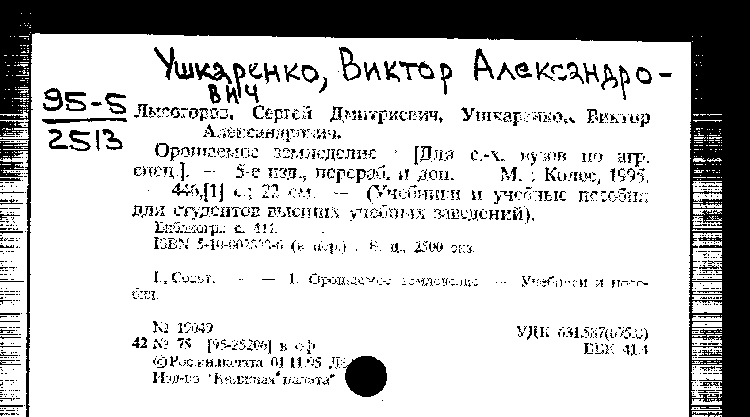 Ушкаренко, Виктор Александро-
вич
95-5
2513
Лысогоров, Сергей Дмитриевич, Ушкаренко, Виктор
Александрович.
Орошаемое земледелие : [Для с.-х. вузов по агр.
спец.]. — 5-е изд., перераб. и доп. М. : Колос, 1995.
— 446,[1] с.; 22 см. — (Учебники и учебные пособия
для студентов высших учебных заведений).
Библиогр.: с. 411.
ISBN (в пер.) : Б. ц., 2500 экз.
— — 1. Орошаемое земледелие — Учебники и посо-
бия.
№ 19049
УДК
42 № 75 [95-25206] в о.ф
ББК 41.4
©Рос.кн.палата 01.11.95
Изд-во "Книжная палата"